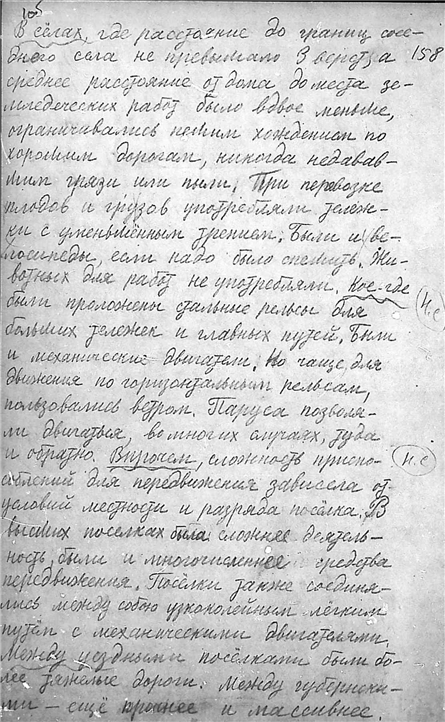 105
В сёлах, где расстояние до границ сосе-
днего села не превышало 3 верст, а 158
среднее расстояние от дома до места зе-
мледеческих работ было вдвое меньше,
ограничивались пешим хождением по
хорошим дорогам, никогда недавав-
шим грязи или пыли. При перевозке
плодов и грузов употребляли тележ-
ки с уменьшённым трением. Были и ве-
лосипеды, если надо было спешить. Жи-
вотных для работ не употребляли. Кое-где
были проложены стальные рельсы для Н.с
больших тележек и главных путей. Были
и механические двигатели. Но чаще, для
движения по горизонтальным рельсам,
пользовались ветром. Паруса позволя-
ли двигаться, во многих случаях, туда
и обратно. Впрочем, сложность приспо- Н.с
соблений для передвижения зависела от
условий местности и разряда посёлка. В
высших поселках была сложнее деятель-
ность, были и многочисленнее средства
передвижения. Посёлки также соединя-
лись между собою узкоколейным лёгким
путём с механическими двигателями
Между уездными посёлками были бо-
лее тяжелые дороги. Между губернски-
ми — ещё прочнее и массивнее.